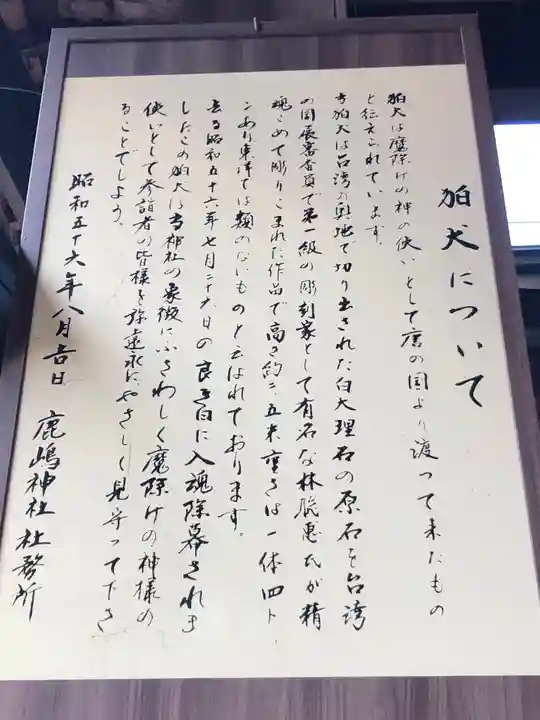 狛犬について
狛犬は魔除けの神の使いとして唐の国より渡って来たもの
と伝えられています。
当狛犬は台湾の奥地で切り出された白大理石の原石を台湾
の国展審査員で第一級の彫刻家として有名な林 惠氏が精
魂こめて彫りこまれた作品で高さ約二、五米重さは一体四ト
ンあり東洋では類のないものと云はれております。
去る昭和五十六年七月二十九日の良き日に入魂除幕されま
したこの狛犬は当神社の象徴にふさわしく魔除けの神様の
使いとして参詣者の皆様を弥遠永にやさしく見守って下さ
ることでしよう。
昭和五十六年八月吉日
鹿嶋神社社務所